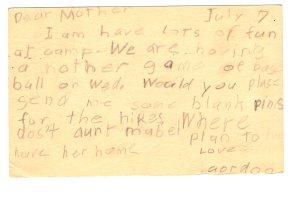 Dear Mother July 7
I am have lots of fun
at camp. We are having
a nother game of bas
ball on Wed. Would you pluse
send me some blank pins
for the hikes Where
dos't aunt mabel plan to
have her home
Love
gordon